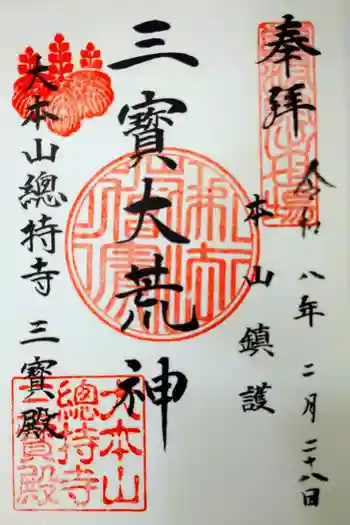 奉拝
令和八年二月二十八日
本山鎮護
三寶大荒神
大本山總持寺三寶殿
大本山
總持寺
三寳殿